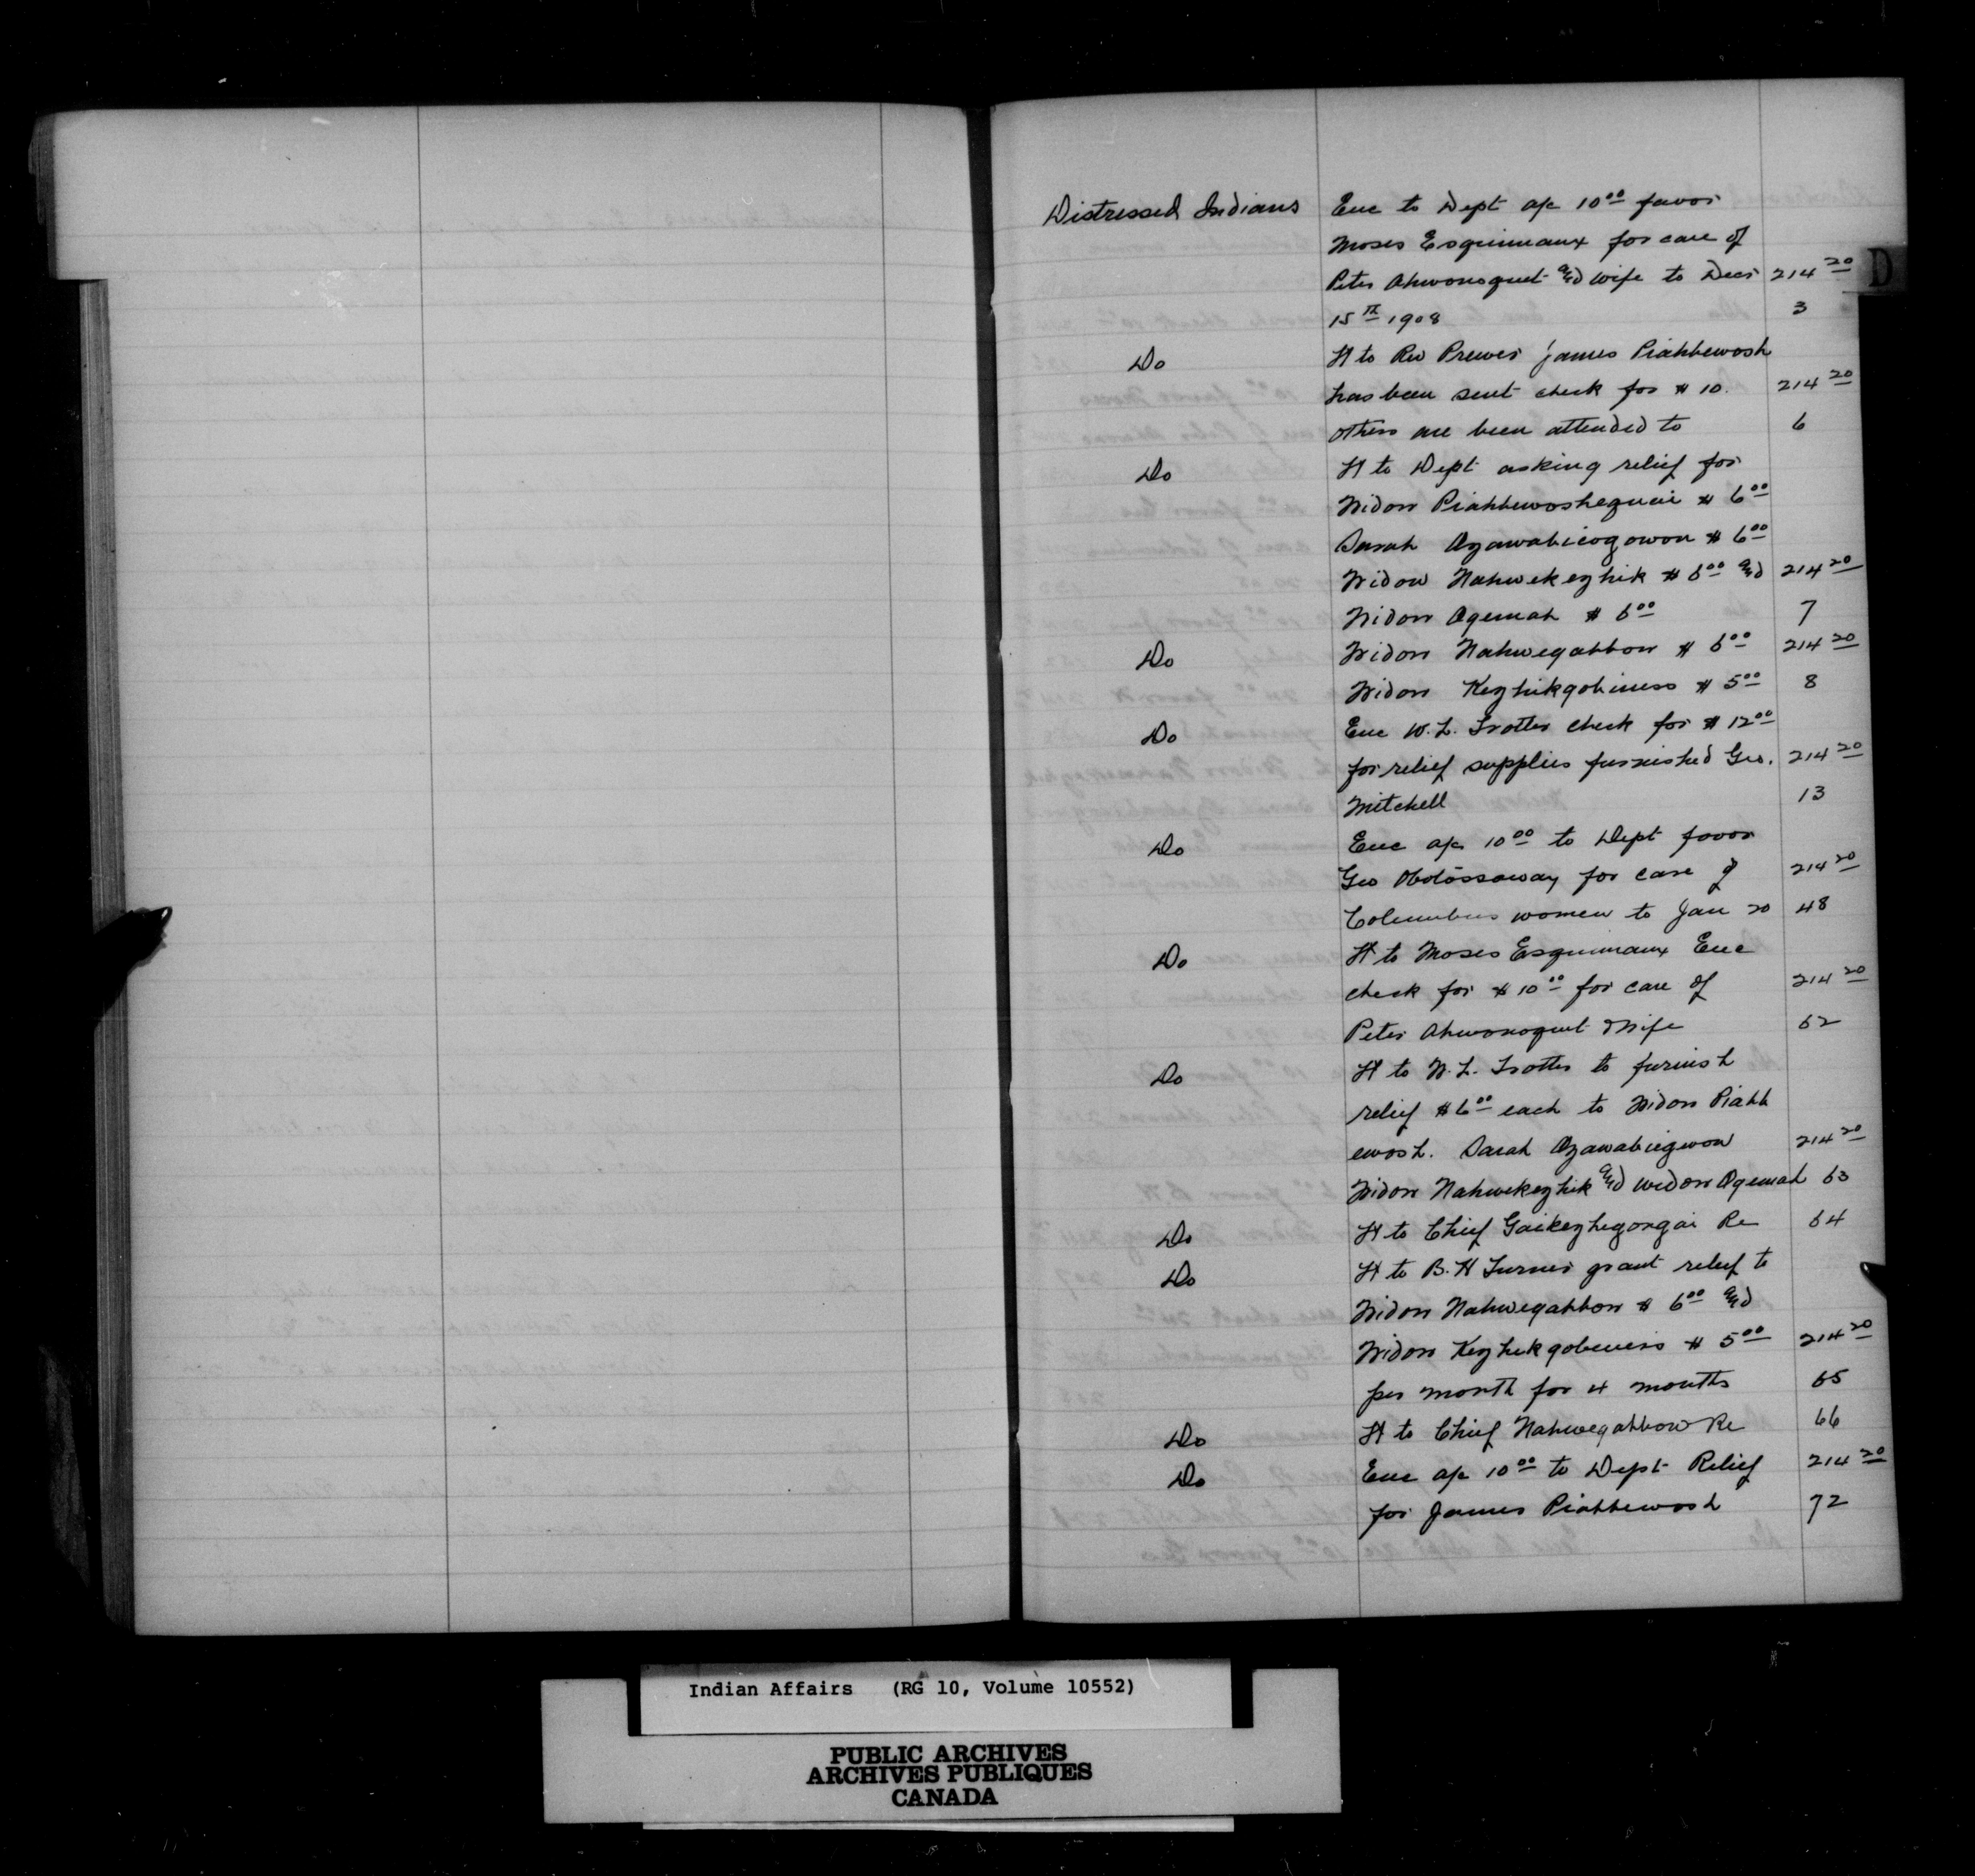 D
Distressed Indians Enc to Dept a/c 10⁰⁰ favor
Moses Esquimaux for care of
Peter Ahwonoquet and wife to Decr 214²⁰
15th 1908 3
Do Lt to Rev Prewer James Piahbewosh
has been sent check for $10. 214²⁰
others are been attended to 6
Do Lt to Dept asking relief for
Widow Piahbewoshequai $6⁰⁰
Sarah Ozawabicogowon $6⁰⁰
Widow Nahwekezhik $6⁰⁰ and 214²⁰
Widow Ogemah $6⁰⁰ 7
Do Widow Nahwegahbow $6⁰⁰ 214²⁰
Widow Kezhikgobiness $5⁰⁰ 8
Do Enc W. L. Trotter check for $12⁰⁰
for relief supplies furnished Geo. 214²⁰
Mitchell 13
Do Enc a/c 10⁰⁰ to Dept favor
Geo Obotossoway for care of 214²⁰
Columbus women to Jan 20 48
Do Lt to Moses Esquimaux Enc
check for $10⁰⁰ for care of 214²⁰
Peter Ahwonoquet & Wife 62
Do Lt to W. L. Trotter to furnish
relief $6⁰⁰ each to Widow Piahb
ewosh. Sarah Ozawabiegwon 214²⁰
Widow Nahwekezhik and widow Ogemah 63
Do Lt to Chief Gaikezhegongai Re 64
Do Lt to B. H Turner grant relief to
Widow Nahwegahbow $6⁰⁰ and
Widow Kezhikgobeness $5⁰⁰ 214²⁰
per month for 4 months 65
Do Lt to Chief Nahwegahbow Re 66
Do Enc a/c 10⁰⁰ to Dept Relief 214²⁰
for James Piahbewosh 72
Indian Affairs (RG 10, Volume 10552)
PUBLIC ARCHIVES
ARCHIVES PUBLIQUES
CANADA